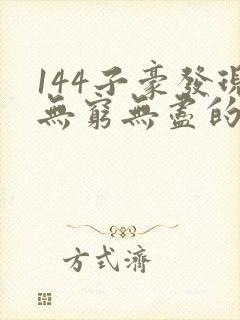 144子豪發現
無窮無盡的
方式濟